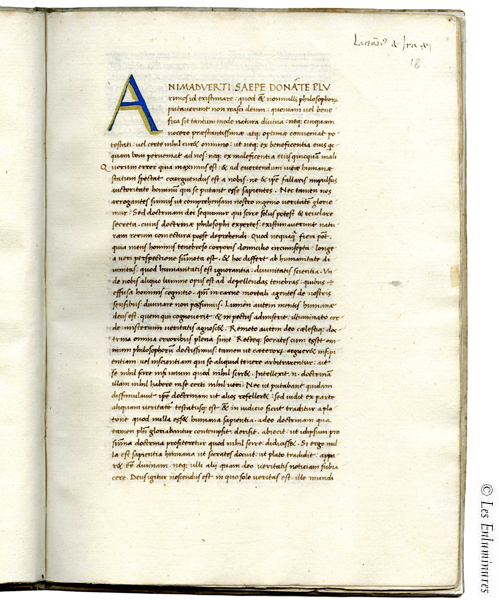 18
ANIMADVERTI SAEPE DONATE PLV
rimos id existimare · quod & nonnulli philosophorum
putaverunt non irasci deum : quoniam vel bene
fica sit tantum modo natura divina : neq; cuiquam
nocere praestantissimae atq; optimae conveniat po-
testati : vel certe nihil curet omnino : ut neq; ex beneficentia eius q̃c
quam boni perveniat ad nos : neq; ex maleficentia eius quicquam mali
quorum error quia maximus est : & ad evertendum vitae humanae
statum spectat coarguendus est a nobis : ne & ipse fallaris impulsus
auctoritate hominum qui se putant esse sapientes · Nec tamen nos
arrogantes sumus ut comprehensam nostro ingenio veritatem glorie
mur : Sed doctrinam dei sequimur qui scire solus potest & revelare
secreta : cuius doctrinae philosophi expertes : existimaverunt natu
ram rerum coniectura posse deprehendi · Quod nequaq̃ fieri pot̃
quia mens hominis tenebroso corporis domicilio circumsepta : longe
a veri perspectione summota est : & hoc differt ab humanitate di
vinitas : quod humanitatis est ignorantia : divinitatis scientia · Vn
de nobis aliquo lumine opus est ad depellendas tenebras : quibus
offusa hominis cognitio · qm̃ in carne mortali agentes de nostris
sensibus : divinare non possumus · Lumen autem mentis humanae
deus est · quem qui cognoverit & in pectus admiserit · illuminato cor
de misterium veritatis agnosc& · Remoto autem deo caelestiq; doc-
trina omnia erroribus plena sunt · Recteq; socrates cum esset om
nium philosophorum doctissimus : tamen ut caeteros argueret insipi
entiam · vel inscientiam qui se aliquid tenere arbitrarentur · ait
se nihil scire nisi unum quod nihil scir& · Intellexit ·n· doctrinam
illam nihil habere in se certi nihil veri : Nec ut putabant quidam
dissimulavit ipse doctrinam ut alios refelleret : sed vidit ex parte
aliquam veritatem testatusq; est & in iudicio sicut traditur a pla
tone quod nulla esset humana sapientia · adeo doctrinam qua
tamen ph̃i gloriabantur contempsit · derisit · abiecit · ut id ipsum pro
summa doctrina profiteretur quod nihil scire didicisset · Si ergo nul
la est sapientia humana ut socrates docuit · ut plato tradidit · appa
r& & eẽ divinam · neq; ulli alij quam deo veritatis notitiam subia
cere · Deus igitur noscendus est in quo solo veritas est · ille mundi
© Les Enluminures